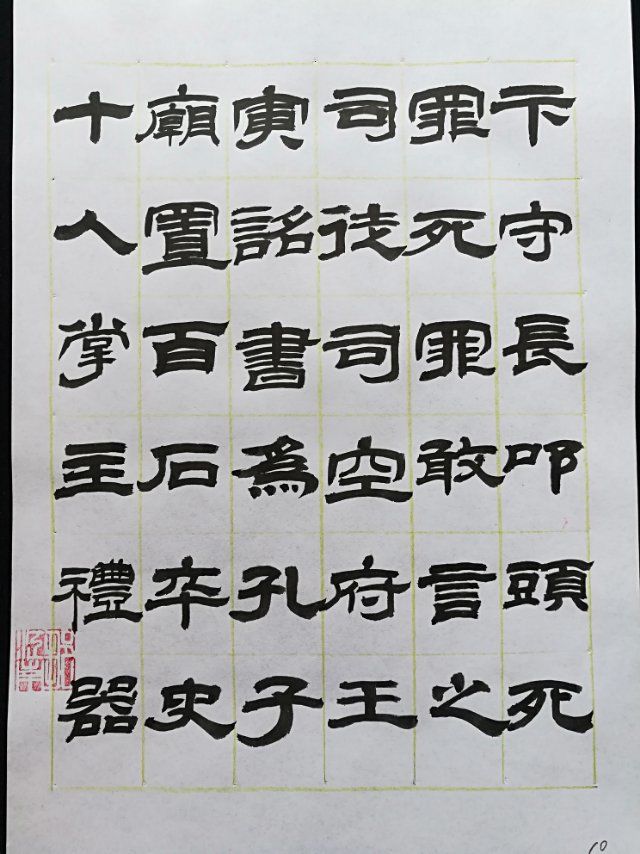 卞守長叩頭死
罪死罪敢言之
司徒司空府壬
寅詔書為孔子
廟置百石卒史
十人掌主禮器
10